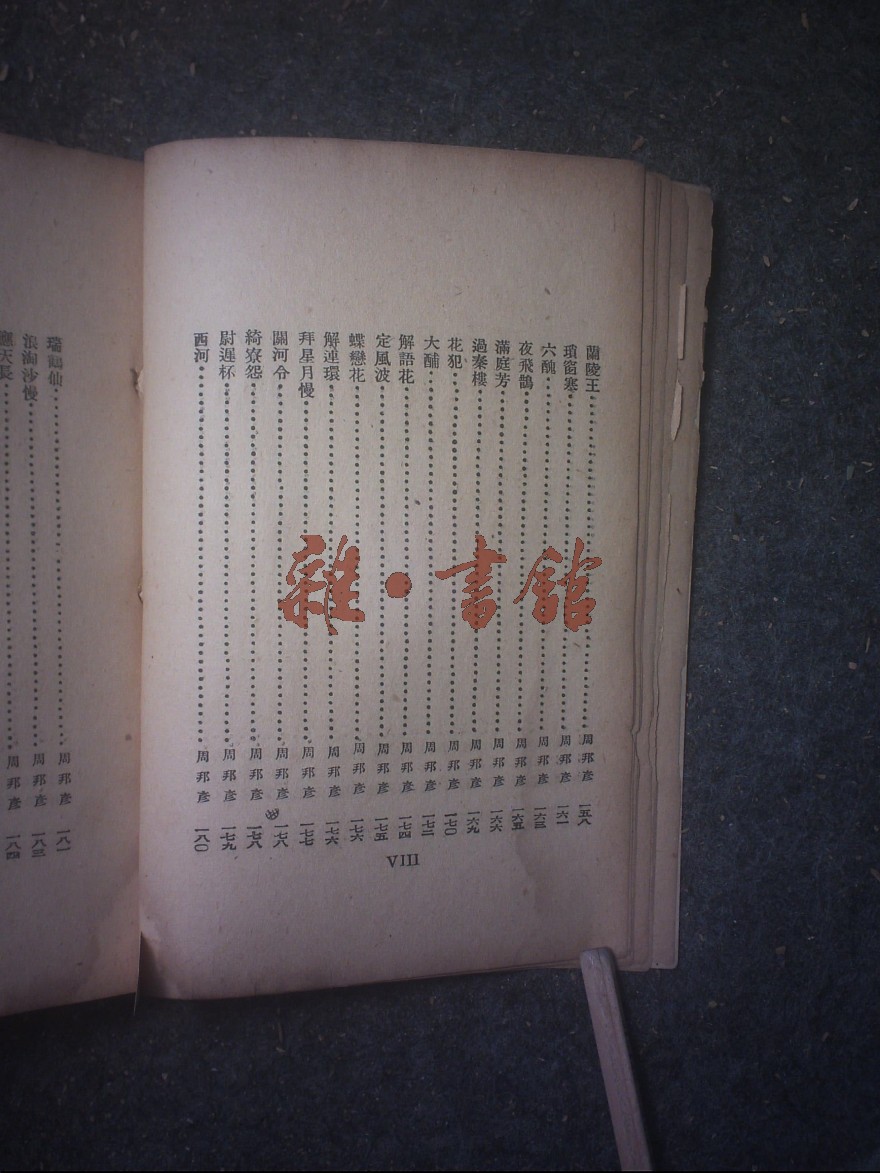 蘭陵王 周邦彥 一五八
瑣窗寒 周邦彥 一六一
六醜 周邦彥 一六三
夜飛鵲 周邦彥 一六五
滿庭芳 周邦彥 一六六
過秦樓 周邦彥 一六九
花犯 周邦彥 一七〇
大酺 周邦彥 一七二
解語花 周邦彥 一七四
定風波 周邦彥 一七五
蝶戀花 周邦彥 一七六
解連環 周邦彥 一七六
拜星月慢 周邦彥 一七七
關河令 周邦彥 一七八
綺寮怨 周邦彥 一七八
尉遲杯 周邦彥 一七九
西河 周邦彥 一八〇
VIII
瑞鶴仙 周邦彥 一八一
浪淘沙慢 周邦彥 一八三
應天長 周邦彥 一八四
雜·書館